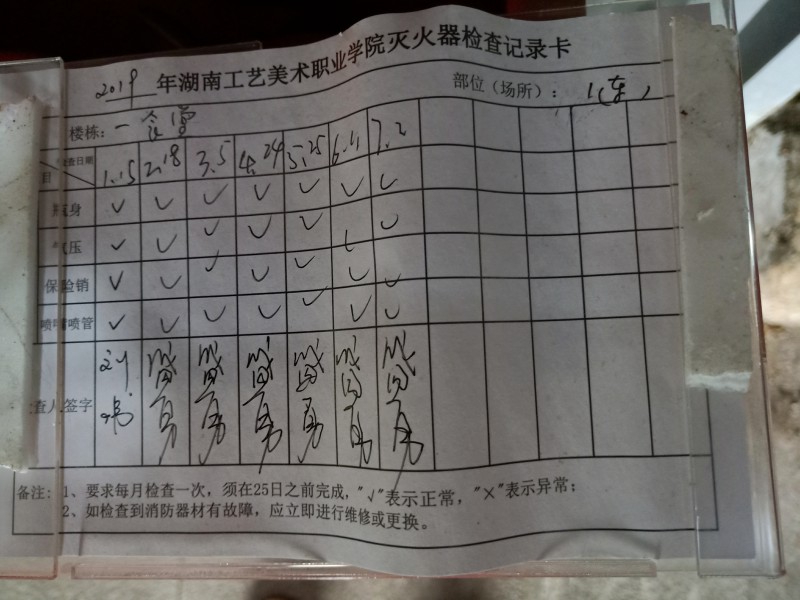 2019 年湖南工艺美术职业学院灭火器检查记录卡
楼栋：一食堂 部位（场所）： 1（东）
查日期 1.15 2.18 3.5 4.24 5.25 6.11 7.2
目
瓶身 ✓ ✓ ✓ ✓ ✓ ✓ ✓
气压 ✓ ✓ ✓ ✓ ✓ ✓ ✓
保险销 ✓ ✓ ✓ ✓ ✓ ✓ ✓
喷嘴喷管 ✓ ✓ ✓ ✓ ✓ ✓ ✓
查人签字
备注：1、要求每月检查一次，须在25日之前完成，"√"表示正常，"×"表示异常；
2、如检查到消防器材有故障，应立即进行维修或更换。